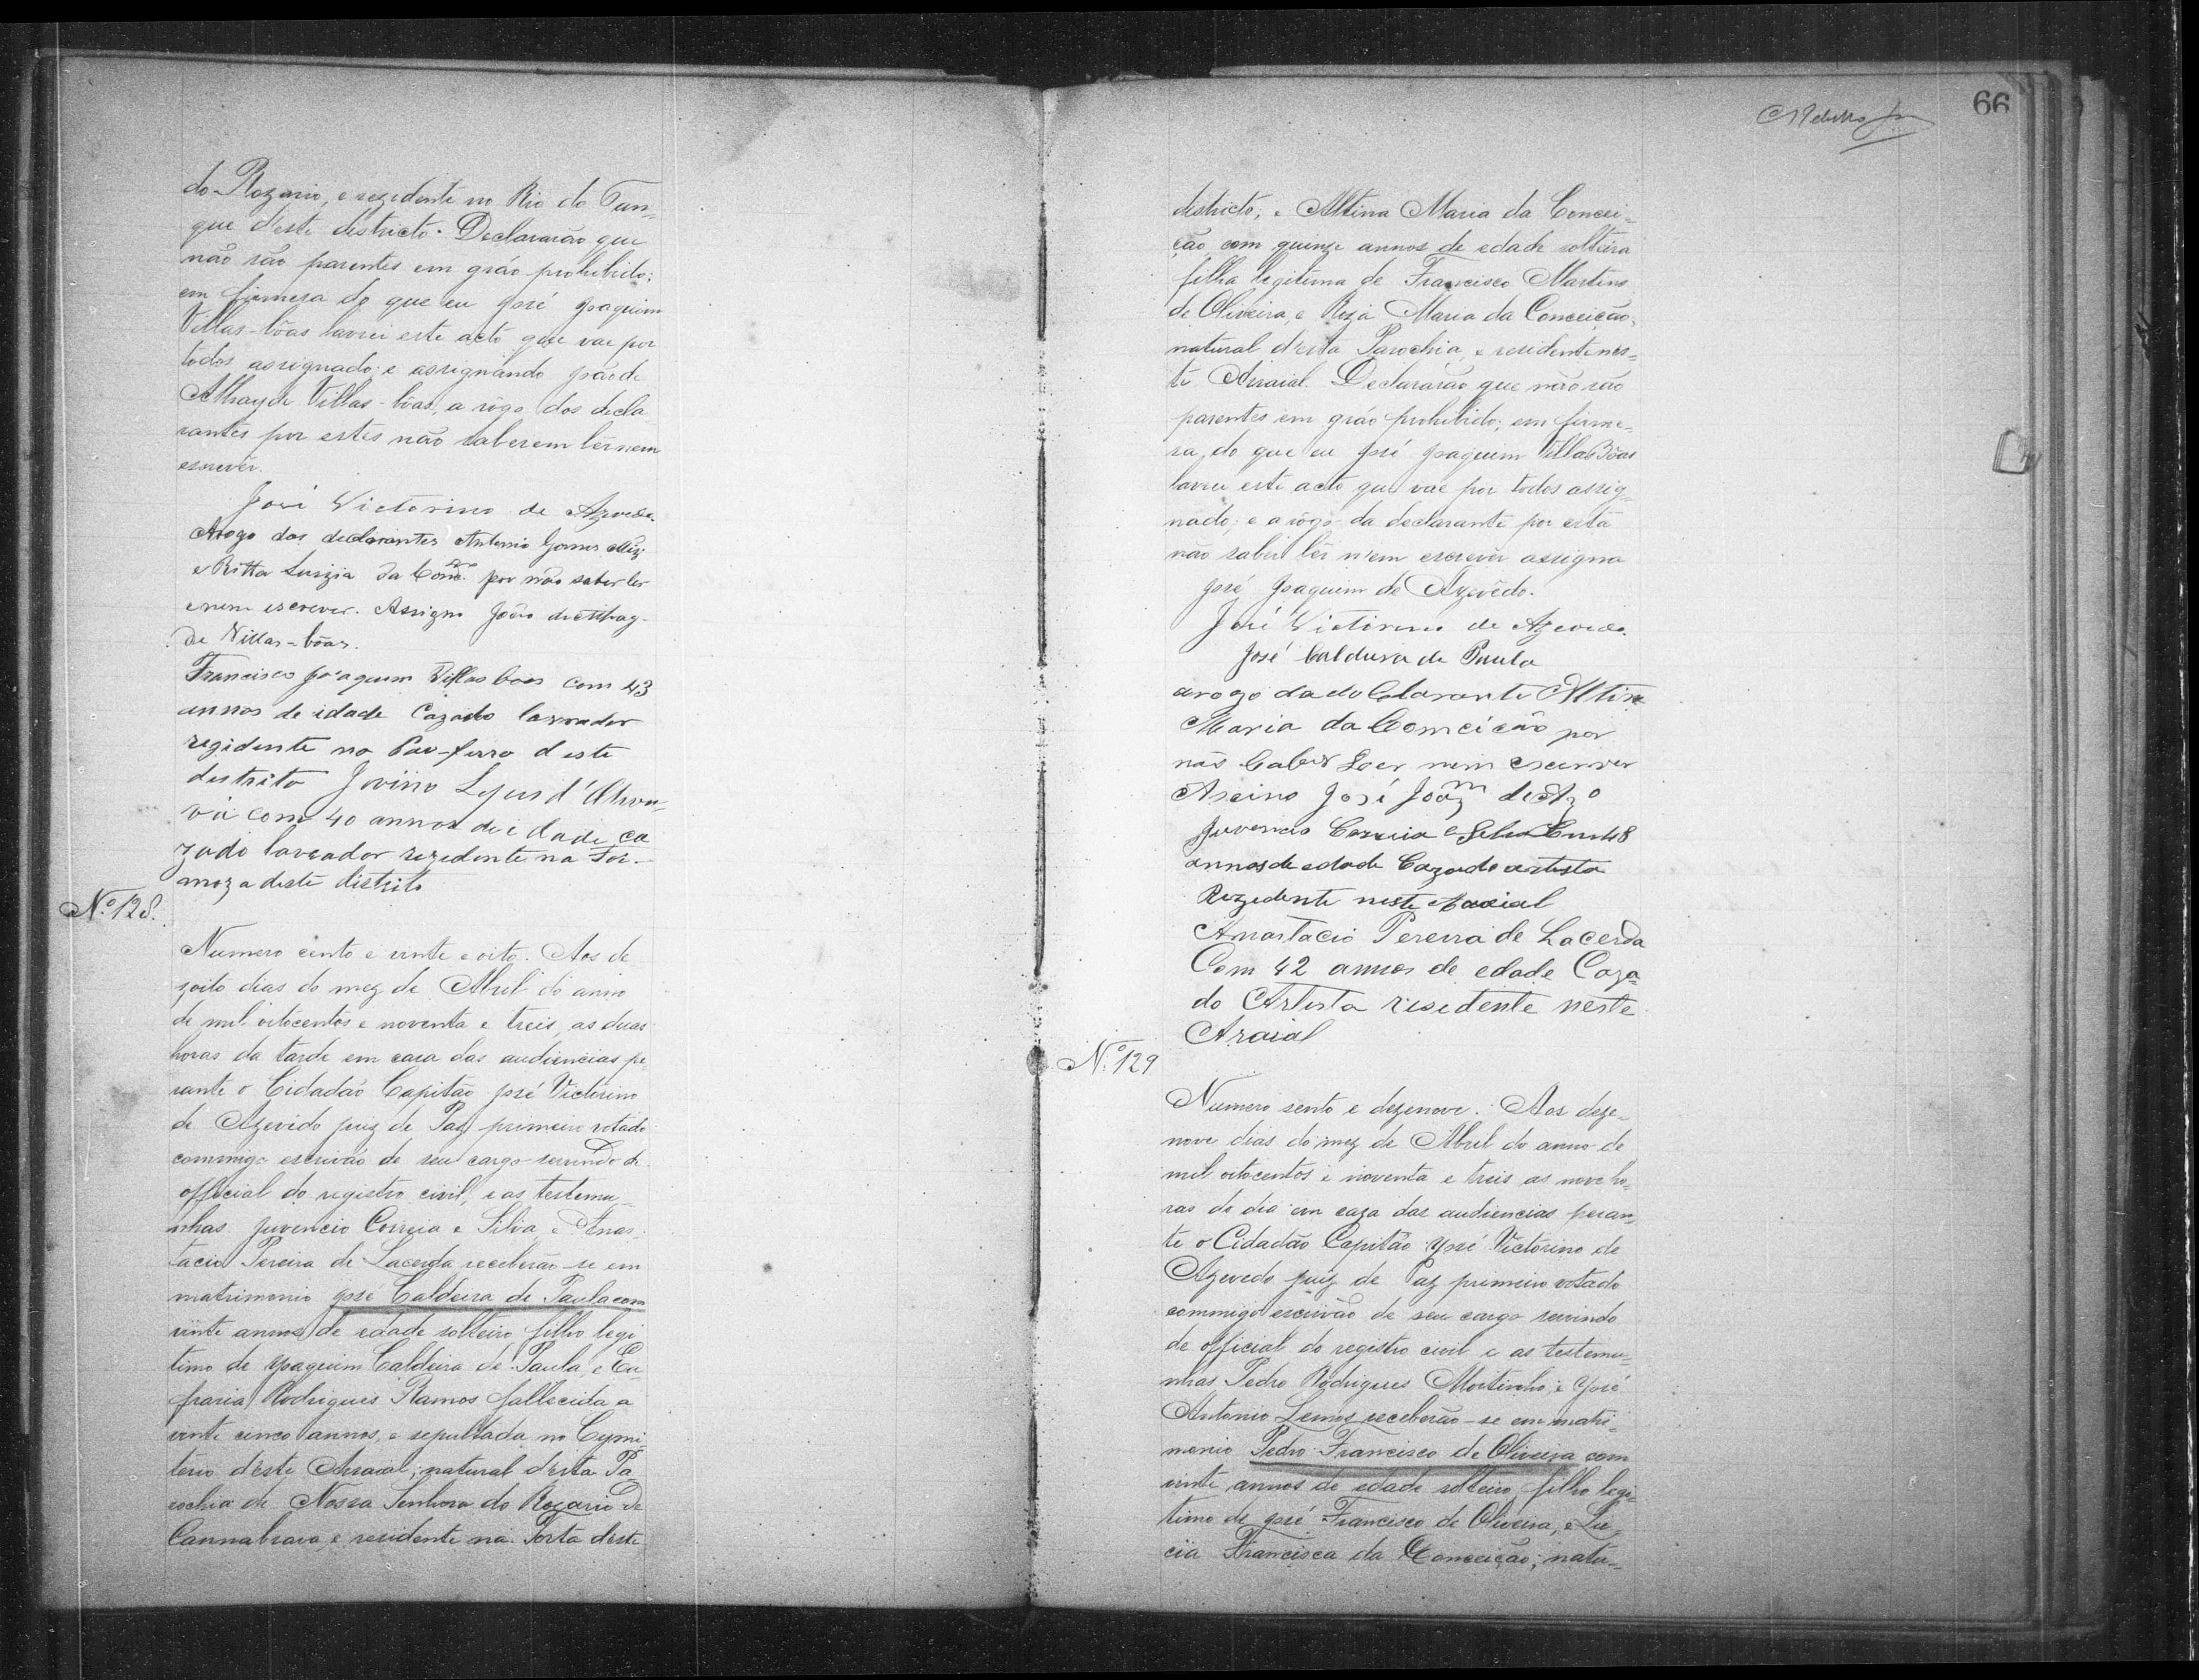 do Rozario, e rezidente no Rio do Tan-
que d'este districto. Declararão que
não são parentes em gráo prohibido;
em firmesa do que eu José Joaquim
Villas-bôas lavrei este acto que vae por
todos assignado; e assignando João de
Athayde Villas-bôas, a rôgo dos decla
rantes por estes não saberem lêr nem
escrever.
José Victorino de Azevedo
Arogo dos declarantes Antonio Gomes
e Ritta Luzia da Conc.ção por não saber ler
e nem escrever. Assigno João de Athay-
de Villas-bôas.
Francisco Joaquim Villas boas com 43
annos de idade Cazado lavrador
rezidente no Pau-ferro deste
destrito Jovino Lopes d'
va com 40 annos de idade ca
zado lavrador rezidente na For-
moza deste distrito
N.º 128.
Numero cento e vinte e oito. Aos de
zoito dias do mez de Abril do anno
de mil oitocentos e noventa e treis, as duas
horas da tarde em casa das audiencias pe
rante o Cidadão Capitão José Victorino
de Azevêdo juiz de Paz primeiro votado
commigo escrivão de seu cargo servindo de
official do registro civil, e as testemu-
nhas Juvencio Correia e Silva, e Anas-
tacio Pereira de Lacerda receberão-se em
matrimonio José Caldeira de Paula com
vinte annos de edade solteiro filho legi
timo de Joaquim Caldeira de Paula, e Eu-
frazia Rodrigues Ramos fallecida a
vinte cinco annos, e sepultada no Cymi
terio d'este Arraial; natural d'esta Pa
rochia de Nossa Senhora do Rozario de
Cannabrava, e residente na Porta deste
66
districto; e Altina Maria da Concei-
ção com quinze annos de edade solteira
filha legitima de Francisco Martins
de Oliveira, e Roza Maria da Conceição,
natural d'esta Parochia, e residente nes-
te Arraial. Declararão que não são
parentes em gráo prohibido; em firme-
sa do que eu José Joaquim Villas Bôas
lavrei este acto que vae por todos assig-
nado; e a rôgo da declarante por esta
não saber lêr nem escrever assigna
José Joaquim de Azevêdo.
José Victorino de Azevedo.
José Caldeira de Paula
arogo da declarante Altina
Maria da Comceicão por
não Caber Loer nem escerver
Acino José Joaqm de Azº
Juvencio Correia e Silva Com 48
annos de edade Cazado artista
Rezedente neste Araial
Anastacio Pereira de Lacerda
Com 42 annos de edade Caza
do Artista residente neste
Araial
N.º 129
Numero sento e dezenove. Aos deze-
nove dias do mez de Abril do anno de
mil oitocentos e noventa e treis as nove ho-
ras do dia em caza das audiencias peran-
te o Cidadão Capitão José Victorino de
Azevedo juiz de Paz primeiro votado
commigo escrivão de seu cargo servindo
de official do registro civil e as testemu-
nhas Pedro Rodrigues Moitinho, e José
Antonio Lemos receberão-se em matri-
monio Pedro Francisco de Oliveira com
vinte annos de edade solteiro filho legi-
timo de José Francisco de Oliveira, e Lu-
cia Francisca da Conceição; natu-